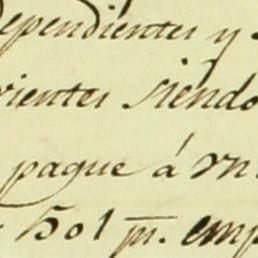 dependientes y
rientes siendo
pague á vn
1501 pr. emp